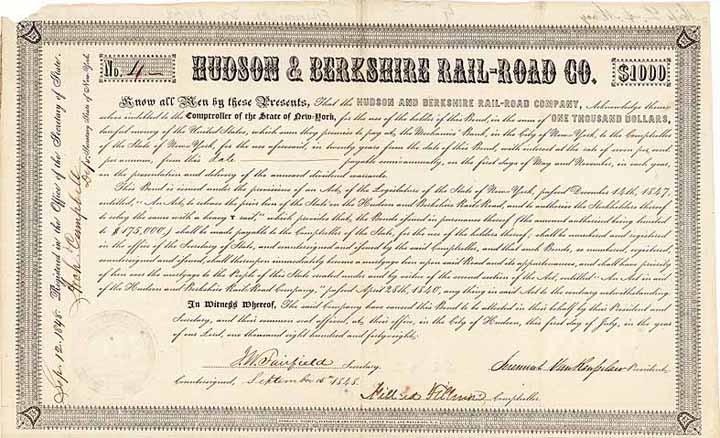 No. 4
HUDSON & BERKSHIRE RAIL-ROAD CO.
$1000
Know all Men by these Presents, That the HUDSON AND BERKSHIRE RAIL-ROAD COMPANY, Acknowledge themselves
indebted to the Comptroller of the State of New-York, for the use of the holder of this Bond, in the sum of ONE THOUSAND DOLLARS,
lawful money of the United States, which sum they promise to pay at the Mechanics' Bank, in the City of New-York, to the Comptroller
of the State of New York, for the use aforesaid, in twenty years from the date of this Bond, with interest at the rate of seven per cent
per annum, from this date payable semi-annually, on the first days of May and November, in each year,
on the presentation and delivery of the annexed dividend warrants.
This Bond is issued under the provisions of an Act, of the Legislature of the State of New York, passed December 14th, 1847,
entitled, "An Act, to release the prior lien of the State on the Hudson and Berkshire Rail Road, and to authorize the Stockholders thereof
to relay the same with a heavy T rail," which provides that, the Bonds issued in pursuance thereof, (the amount authorized being limited
to $175,000,) shall be made payable to the Comptroller of the State, for the use of the holders thereof, shall be numbered and registered
in the office of the Secretary of State, and countersigned and issued by the said Comptroller, and that such Bonds, so numbered, registered,
countersigned and issued, shall thereupon immediately become a mortgage lien upon said Road and its appurtenances, and shall have priority
of lien over the mortgage to the People of this State created under and by virtue of the second section of the Act, entitled "An Act in aid
of the Hudson and Berkshire Rail Road Company," passed April 28th, 1840, any thing in said Act to the contrary notwithstanding.
In Witness Whereof, The said Company have caused this Bond to be attested in their behalf by their President and
Secretary, and their common seal affixed, at their office, in the City of Hudson, this first day of July, in the year
of our Lord, one thousand eight hundred and forty eight.
Fairfield Secretary.
Jeremiah Van Rensselaer President.
Countersigned, September 15th 1848.
Millard Fillmore Comptroller.
Sep. 12. 1848. Registered in the Office of the Secretary of State.
Campbell
Dep. Secretary State of New-York.